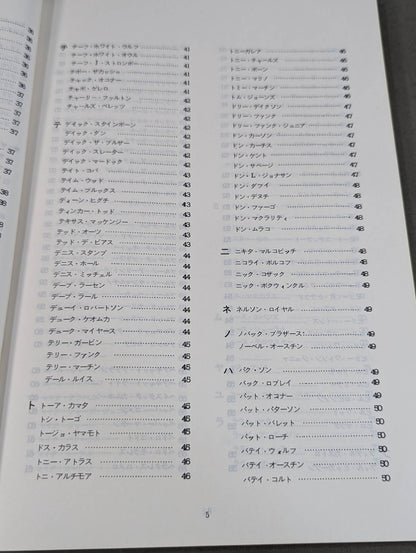 チ チーフ・ホワイト・ウルフ 41
チーフ・ホワイト・オウル 41
チーフ・I・ストロンボー 41
チボー・ザカッシュ 41
チャック・オコナー 41
チャボ・ゲレロ 41
チャーリー・ファルトン 41
チャールズ・ベレッツ 41
テ デイック・スタインボーン 42
デイック・ダン 42
デイック・ザ・ブルザー 42
デイック・スレーター 42
デイック・マードック 42
テイト・コバ 42
テイム・ウッド 43
テイム・ブルックス 43
ディーン・ヒグチ 43
ティンカー・トッド 43
テキサス・マッケンジー 43
テッド・オーツ 43
テッド・デ・ビアス 43
デニス・スタンプ 43
デニス・ホール 43
デニス・ミッチェル 43
デーブ・ラーセン 44
デーブ・ラール 44
デューイ・ロバートソン 44
デューク・ケオムカ 44
デューク・マイヤース 44
テリー・ガービン 44
テリー・ファンク 44
テリー・マーチン 45
デール・ルイス 45
ト トーア・カマタ 45
トシ・トーゴ 45
トージョ・ヤマモト 45
ドス・カラス 45
トニー・アトラス 45
トニ・アルチモア 46
トニーガレア 46
トニー・チャールズ 46
トニー・ボーン 46
トニー・マリノ 46
トミー・マーチン 46
トム・ジョーンズ 46
ドリー・デイクソン 47
ドリー・ファンク 47
ドリー・ファンク・ジュニア 47
ドン・カーソン 47
ドン・カーチス 47
ドン・ケント 47
ドン・サベージ 47
ドン・L・ジョナサン 47
ドン・ダフイ 48
ドン・デヌチ 48
ドン・ファーゴ 48
ドン・マクラリティ 48
ドン・ムラコ 48
ニ ニキタ・マルコビッチ 48
ニコライ・ボルコフ 48
ニック・コザック 48
ニック・ボクウィンクル 48
ネ ネルソン・ロイヤル 49
ノ ノバック・ブラザース 49
ノーベル・オースチン 49
ハ パク・ソン 49
バック・ロブレイ 49
パット・オコナー 49
パット・パターソン 50
パット・バレット 50
パット・ローチ 50
バデイ・ウォルフ 50
バデイ・オースチン 50
バデイ・コルト 50
5